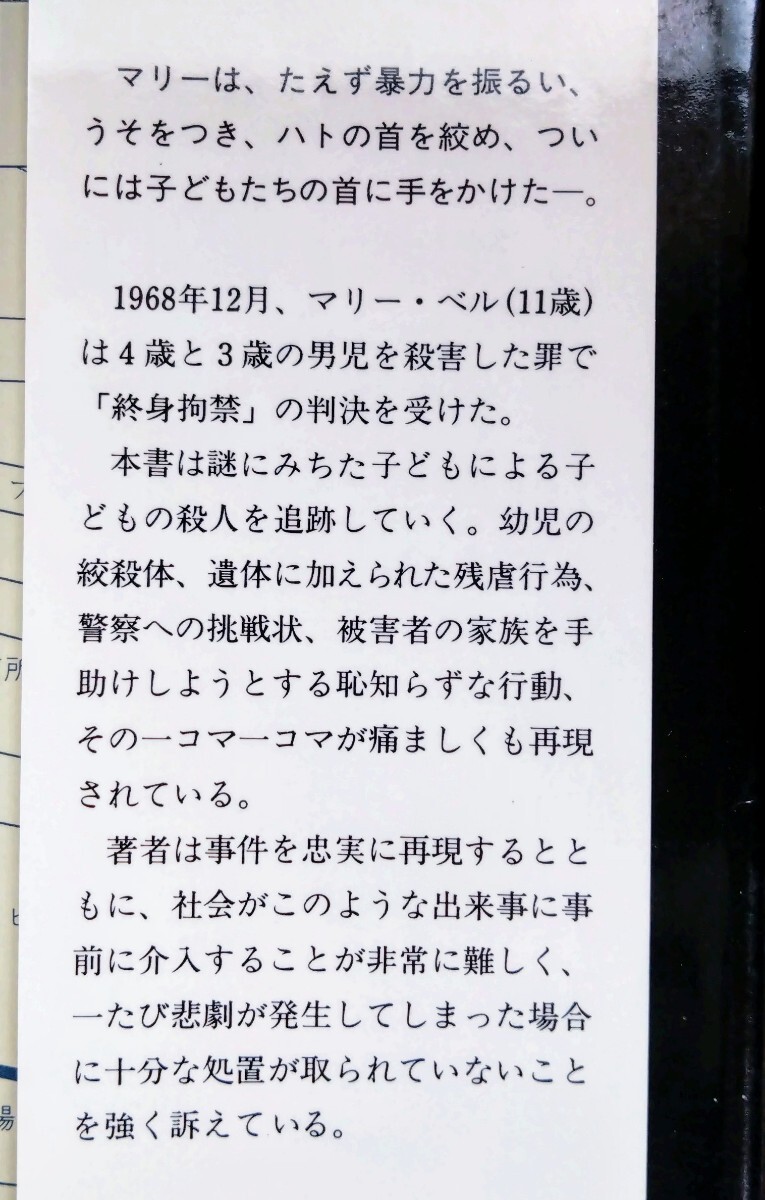 マリーは、たえず暴力を振るい、
うそをつき、ハトの首を絞め、つい
には子どもたちの首に手をかけた―。
1968年12月、マリー・ベル(11歳)
は４歳と３歳の男児を殺害した罪で
「終身拘禁」の判決を受けた。
本書は謎にみちた子どもによる子
どもの殺人を追跡していく。幼児の
絞殺体、遺体に加えられた残虐行為、
警察への挑戦状、被害者の家族を手
助けしようとする恥知らずな行動、
その一コマ一コマが痛ましくも再現
されている。
著者は事件を忠実に再現するとと
もに、社会がこのような出来事に事
前に介入することが非常に難しく、
一たび悲劇が発生してしまった場合
に十分な処置が取られていないこと
を強く訴えている。
所
場